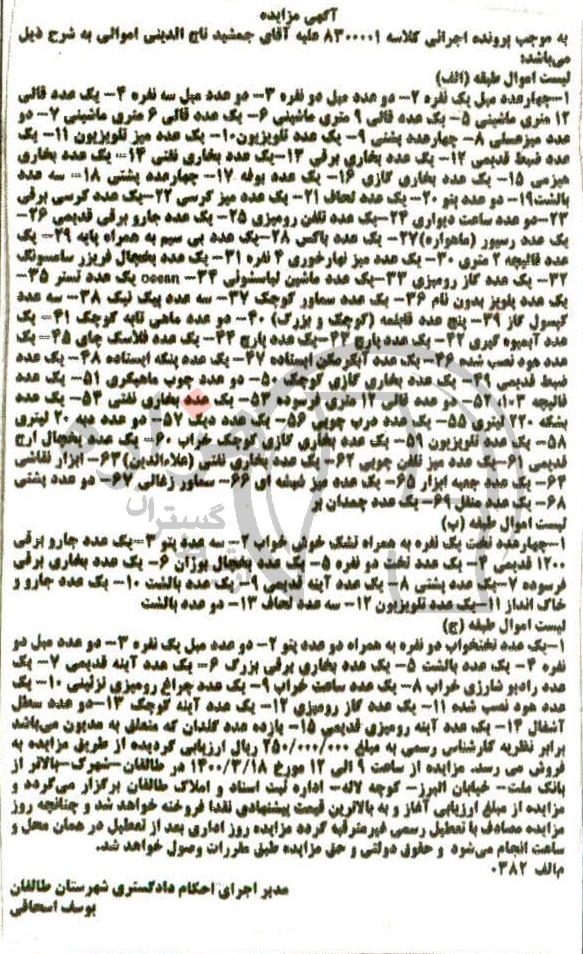 آگهی مزایده
به موجب پرونده اجرائی کلاسه ۸۳۰۰۰۰۱ علیه آقای جمشید تاج الدینی اموالی به شرح ذیل
می‌باشد:
لیست اموال طبقه (الف)
۱-چهارعدد مبل یک نفره ۲- دو عدد مبل دو نفره ۳- دو عدد مبل سه نفره ۴- یک عدد قالی
۱۲ متری ماشینی ۵- یک عدد قالی ۹ متری ماشینی ۶- یک عدد قالی ۶ متری ماشینی ۷- دو
عدد میزعسلی ۸- چهارعدد پشتی ۹- یک عدد تلویزیون ۱۰- یک عدد میز تلویزیون ۱۱- یک
عدد ضبط قدیمی ۱۲- یک عدد بخاری برقی ۱۳-یک عدد بخاری نفتی ۱۴- یک عدد بخاری
هیزمی ۱۵- یک عدد بخاری گازی ۱۶- یک عدد بوفه ۱۷- چهارعدد پشتی ۱۸- سه عدد
بالشت۱۹- دو عدد پتو ۲۰- یک عدد لحاف ۲۱- یک عدد میز کرسی ۲۲-یک عدد کرسی برقی
۲۳-دو عدد ساعت دیواری ۲۴-یک عدد تلفن رومیزی ۲۵- یک عدد جارو برقی قدیمی ۲۶-
یک عدد رسیور (ماهواره)۲۷- یک عدد باکس ۲۸-یک عدد بی سیم به همراه پایه ۲۹- یک
عدد قالیچه ۲ متری ۳۰- یک عدد میز نهارخوری ۴ نفره ۳۱- یک عدد یخچال فریزر سامسونگ
۳۲- یک عدد گاز رومیزی ۳۳-یک عدد ماشین لباسشوئی ocean ۳۴- یک عدد تستر ۳۵-
یک عدد پلوپز بدون نام ۳۶- یک عدد سماور کوچک ۳۷- سه عدد پیک نیک ۳۸- سه عدد
کپسول گاز ۳۹- پنج عدد قابلمه (کوچک و بزرگ) ۴۰- دو عدد ماهی تابه کوچک ۴۱- یک
عدد آبمیوه گیری ۴۲- یک عدد پارچ ۴۳-یک عدد پارچ ۴۴- یک عدد فلاسک چای ۴۵- یک
عدد هود نصب شده ۴۶- یک عدد آبگرمکن ایستاده ۴۷- یک عدد پنکه ایستاده ۴۸- یک عدد
ضبط قدیمی ۴۹- یک عدد بخاری گازی کوچک ۵۰- دو عدد چوب ماهیگیری ۵۱- یک عدد
قالیچه ۵۲- دو عدد قالی ۱۲ متری فرسوده ۵۳- یک عدد بخاری نفتی ۵۴- یک عدد
بشکه ۲۲۰ لیتری ۵۵- یک عدد درب چوبی ۵۶- یک عدد دیگ ۵۷- دو عدد دبه ۲۰ لیتری
۵۸- یک عدد تلویزیون ۵۹- یک عدد بخاری گازی کوچک خراب ۶۰- یک عدد یخچال ارج
قدیمی ۶۱-یک عدد میز تلفن چوبی ۶۲- یک عدد بخاری نفتی (علاءالدین)۶۳- ابزار نقاشی
۶۴- یک عدد جعبه ابزار ۶۵- یک عدد میز شیشه ای ۶۶- سماور زغالی ۶۷- دو عدد پشتی
۶۸- یک عدد منقل ۶۹- یک عدد چمدان پر
لیست اموال طبقه (ب)
۱-چهارعدد تخت یک نفره به همراه تشک خوش خواب ۲- سه عدد پتو ۳-یک عدد جارو برقی
۱۲۰۰ قدیمی ۴- یک عدد تخت دو نفره ۵- یک عدد یخچال پوزان ۶- یک عدد بخاری برقی
فرسوده ۷-یک عدد پشتی ۸- یک عدد آینه قدیمی ۹-یک عدد بالشت ۱۰- یک عدد جارو و
خاک انداز ۱۱-یک عدد تلویزیون ۱۲- سه عدد لحاف ۱۳- دو عدد بالشت
لیست اموال طبقه (ج)
۱-یک عدد تختخواب دو نفره به همراه دو عدد پتو ۲- دو عدد مبل یک نفره ۳- دو عدد مبل دو
نفره ۴- یک عدد بالشت ۵- یک عدد بخاری برقی بزرگ ۶- یک عدد آینه قدیمی ۷- یک
عدد رادیو شارژی خراب ۸- یک عدد ساعت خراب ۹- یک عدد چراغ رومیزی تزئینی ۱۰- یک
عدد هود نصب شده ۱۱- یک عدد گاز رومیزی ۱۲- یک عدد آینه کوچک ۱۳-دو عدد سطل
آشغال ۱۴- یک عدد آینه رومیزی قدیمی ۱۵- یازده عدد گلدان که متعلق به مدیون می‌باشد
برابر نظریه کارشناسی رسمی به مبلغ ۲۵۰/۰۰۰/۰۰۰ ریال ارزیابی گردیده از طریق مزایده به
فروش می رسد. مزایده از ساعت ۹ الی ۱۲ مورخ ۱۴۰۰/۳/۱۸ در طالقان-شهرک-بالاتر از
بانک ملت- خیابان البرز- کوچه لاله- اداره ثبت اسناد و املاک طالقان برگزار می‌گردد و
مزایده از مبلغ ارزیابی آغاز و به بالاترین قیمت پیشنهادی نقدا فروخته خواهد شد و چنانچه روز
مزایده مصادف با تعطیل رسمی غیرمترقبه گردد مزایده روز اداری بعد از تعطیل در همان محل و
ساعت انجام می‌شود و حقوق دولتی و حق مزایده طبق مقررات وصول خواهد شد.
م‌الف ۰۳۸۲
مدیر اجرای احکام دادگستری شهرستان طالقان
یوسف اسحاقی